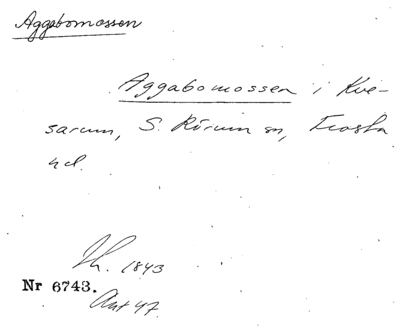 Aggabomossen
Aggabomossen i Kve-
sarum, S. Rörum sn, Frosta
hd.
1843
Nr 6743.